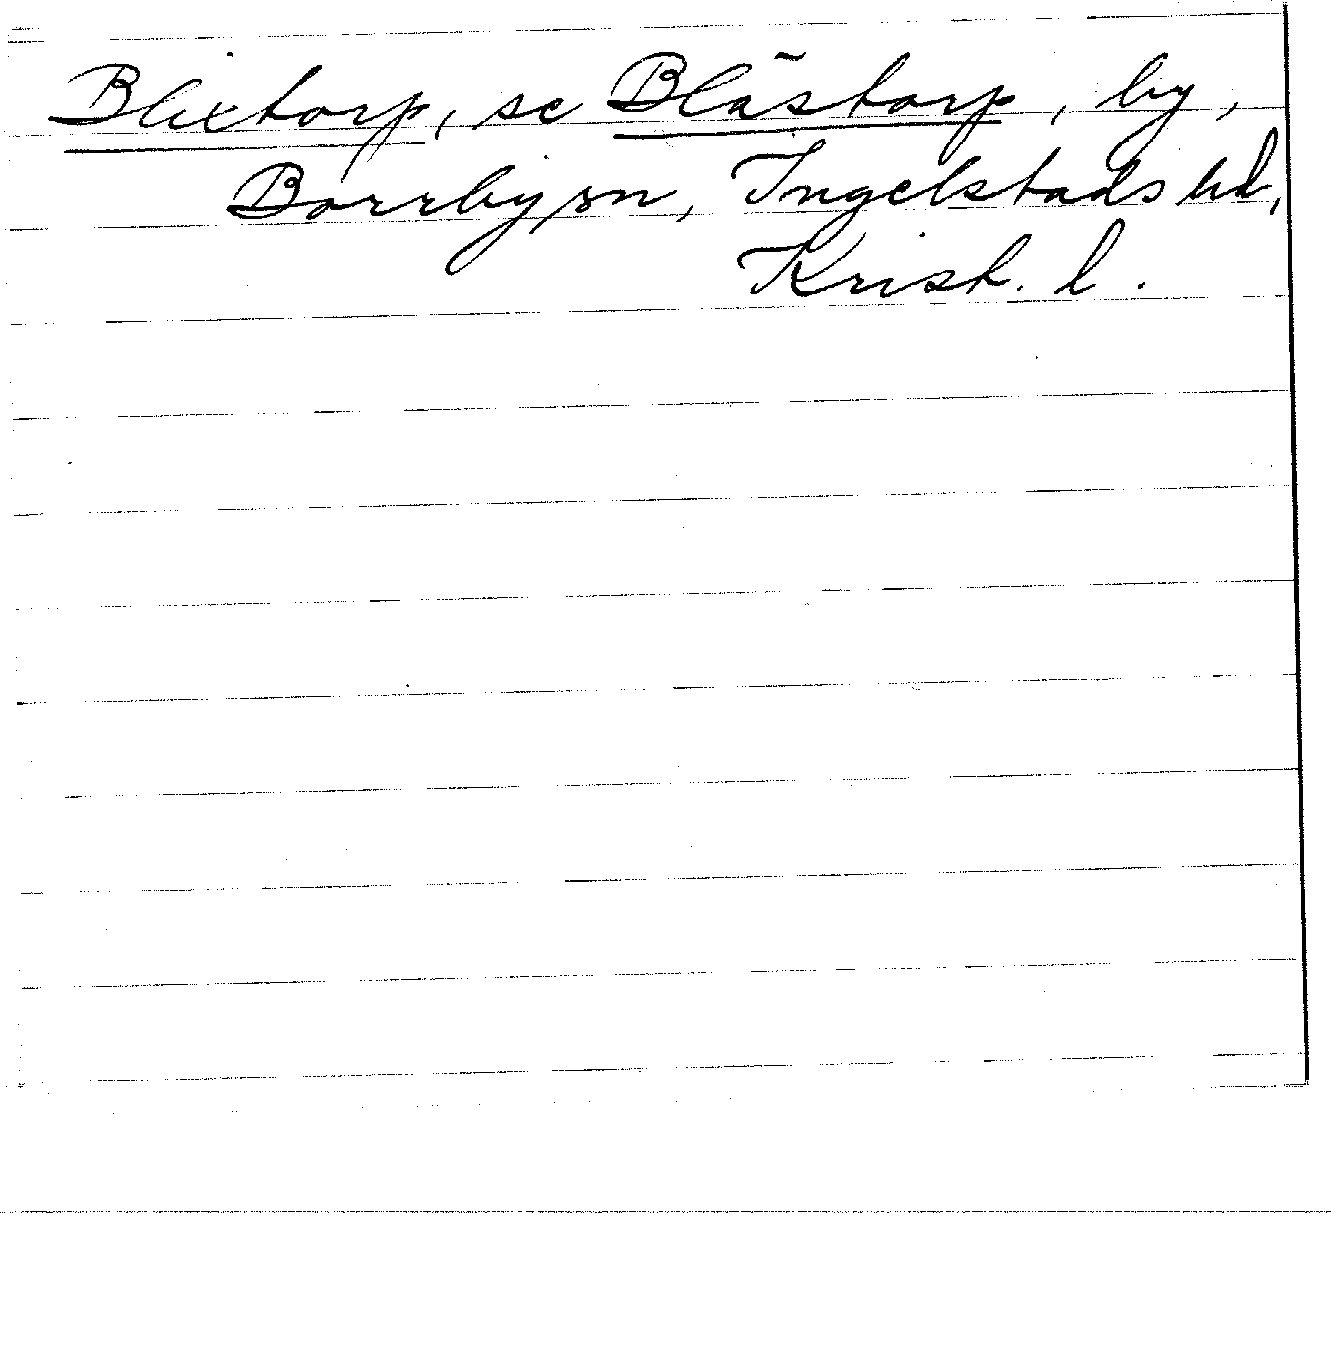 Blixtorp, se Blästorp, by,
Borrby sn, Ingelstads hd,
Krist. l.